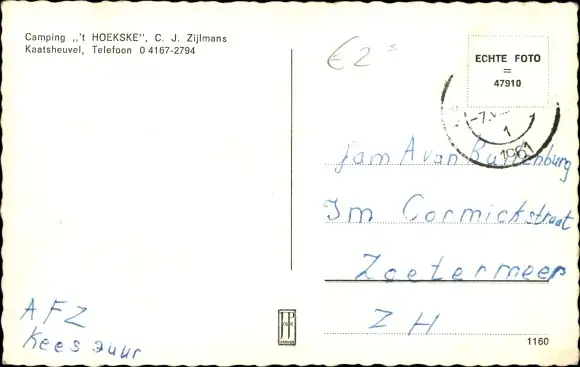 Camping „'t HOEKSKE", C. J. Zijlmans
Kaatsheuvel, Telefoon 0 4167-2794
€2
ECHTE FOTO
=
47910
-7.
1
1961
fam A van Buttenburg
Im Cormickstraat
Zoetermeer
Z H
AFZ
Kees zuur
1160